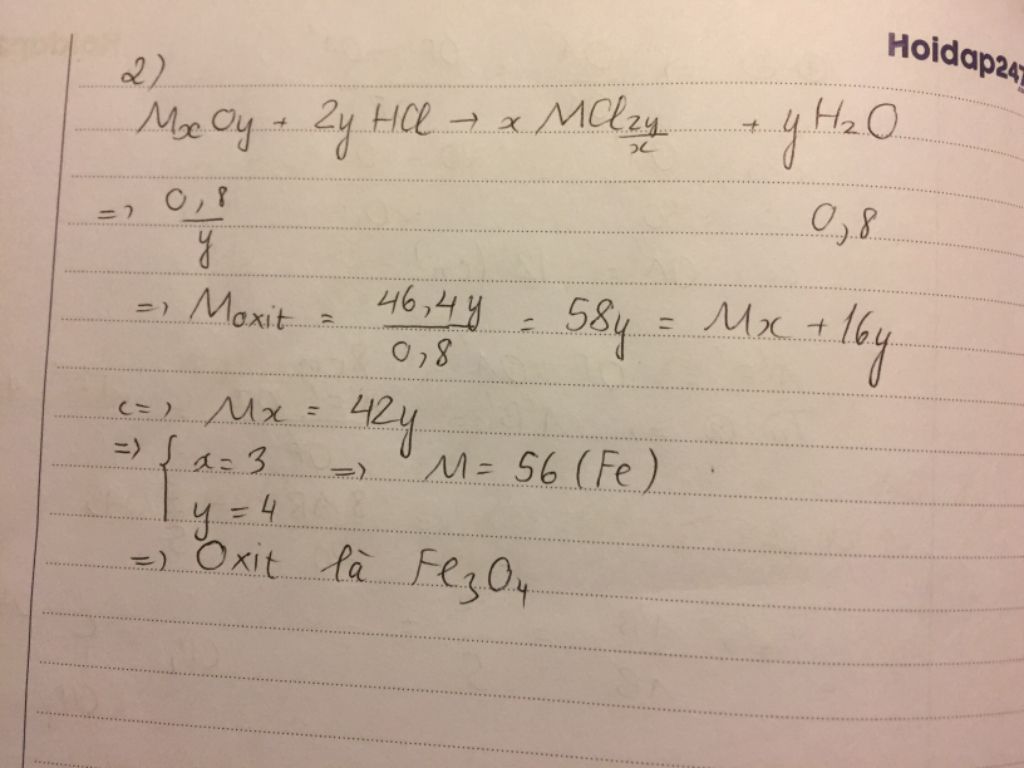 Hoidap247
2)
MxOy + 2y HCl → x MCl2y/x + y H2O
=> 0,8/y 0,8
=> Moxit = 46,4y/0,8 = 58y = Mx + 16y
<=> Mx = 42y
=> { x = 3 => M = 56 (Fe)
y = 4
=> Oxit là Fe3O4